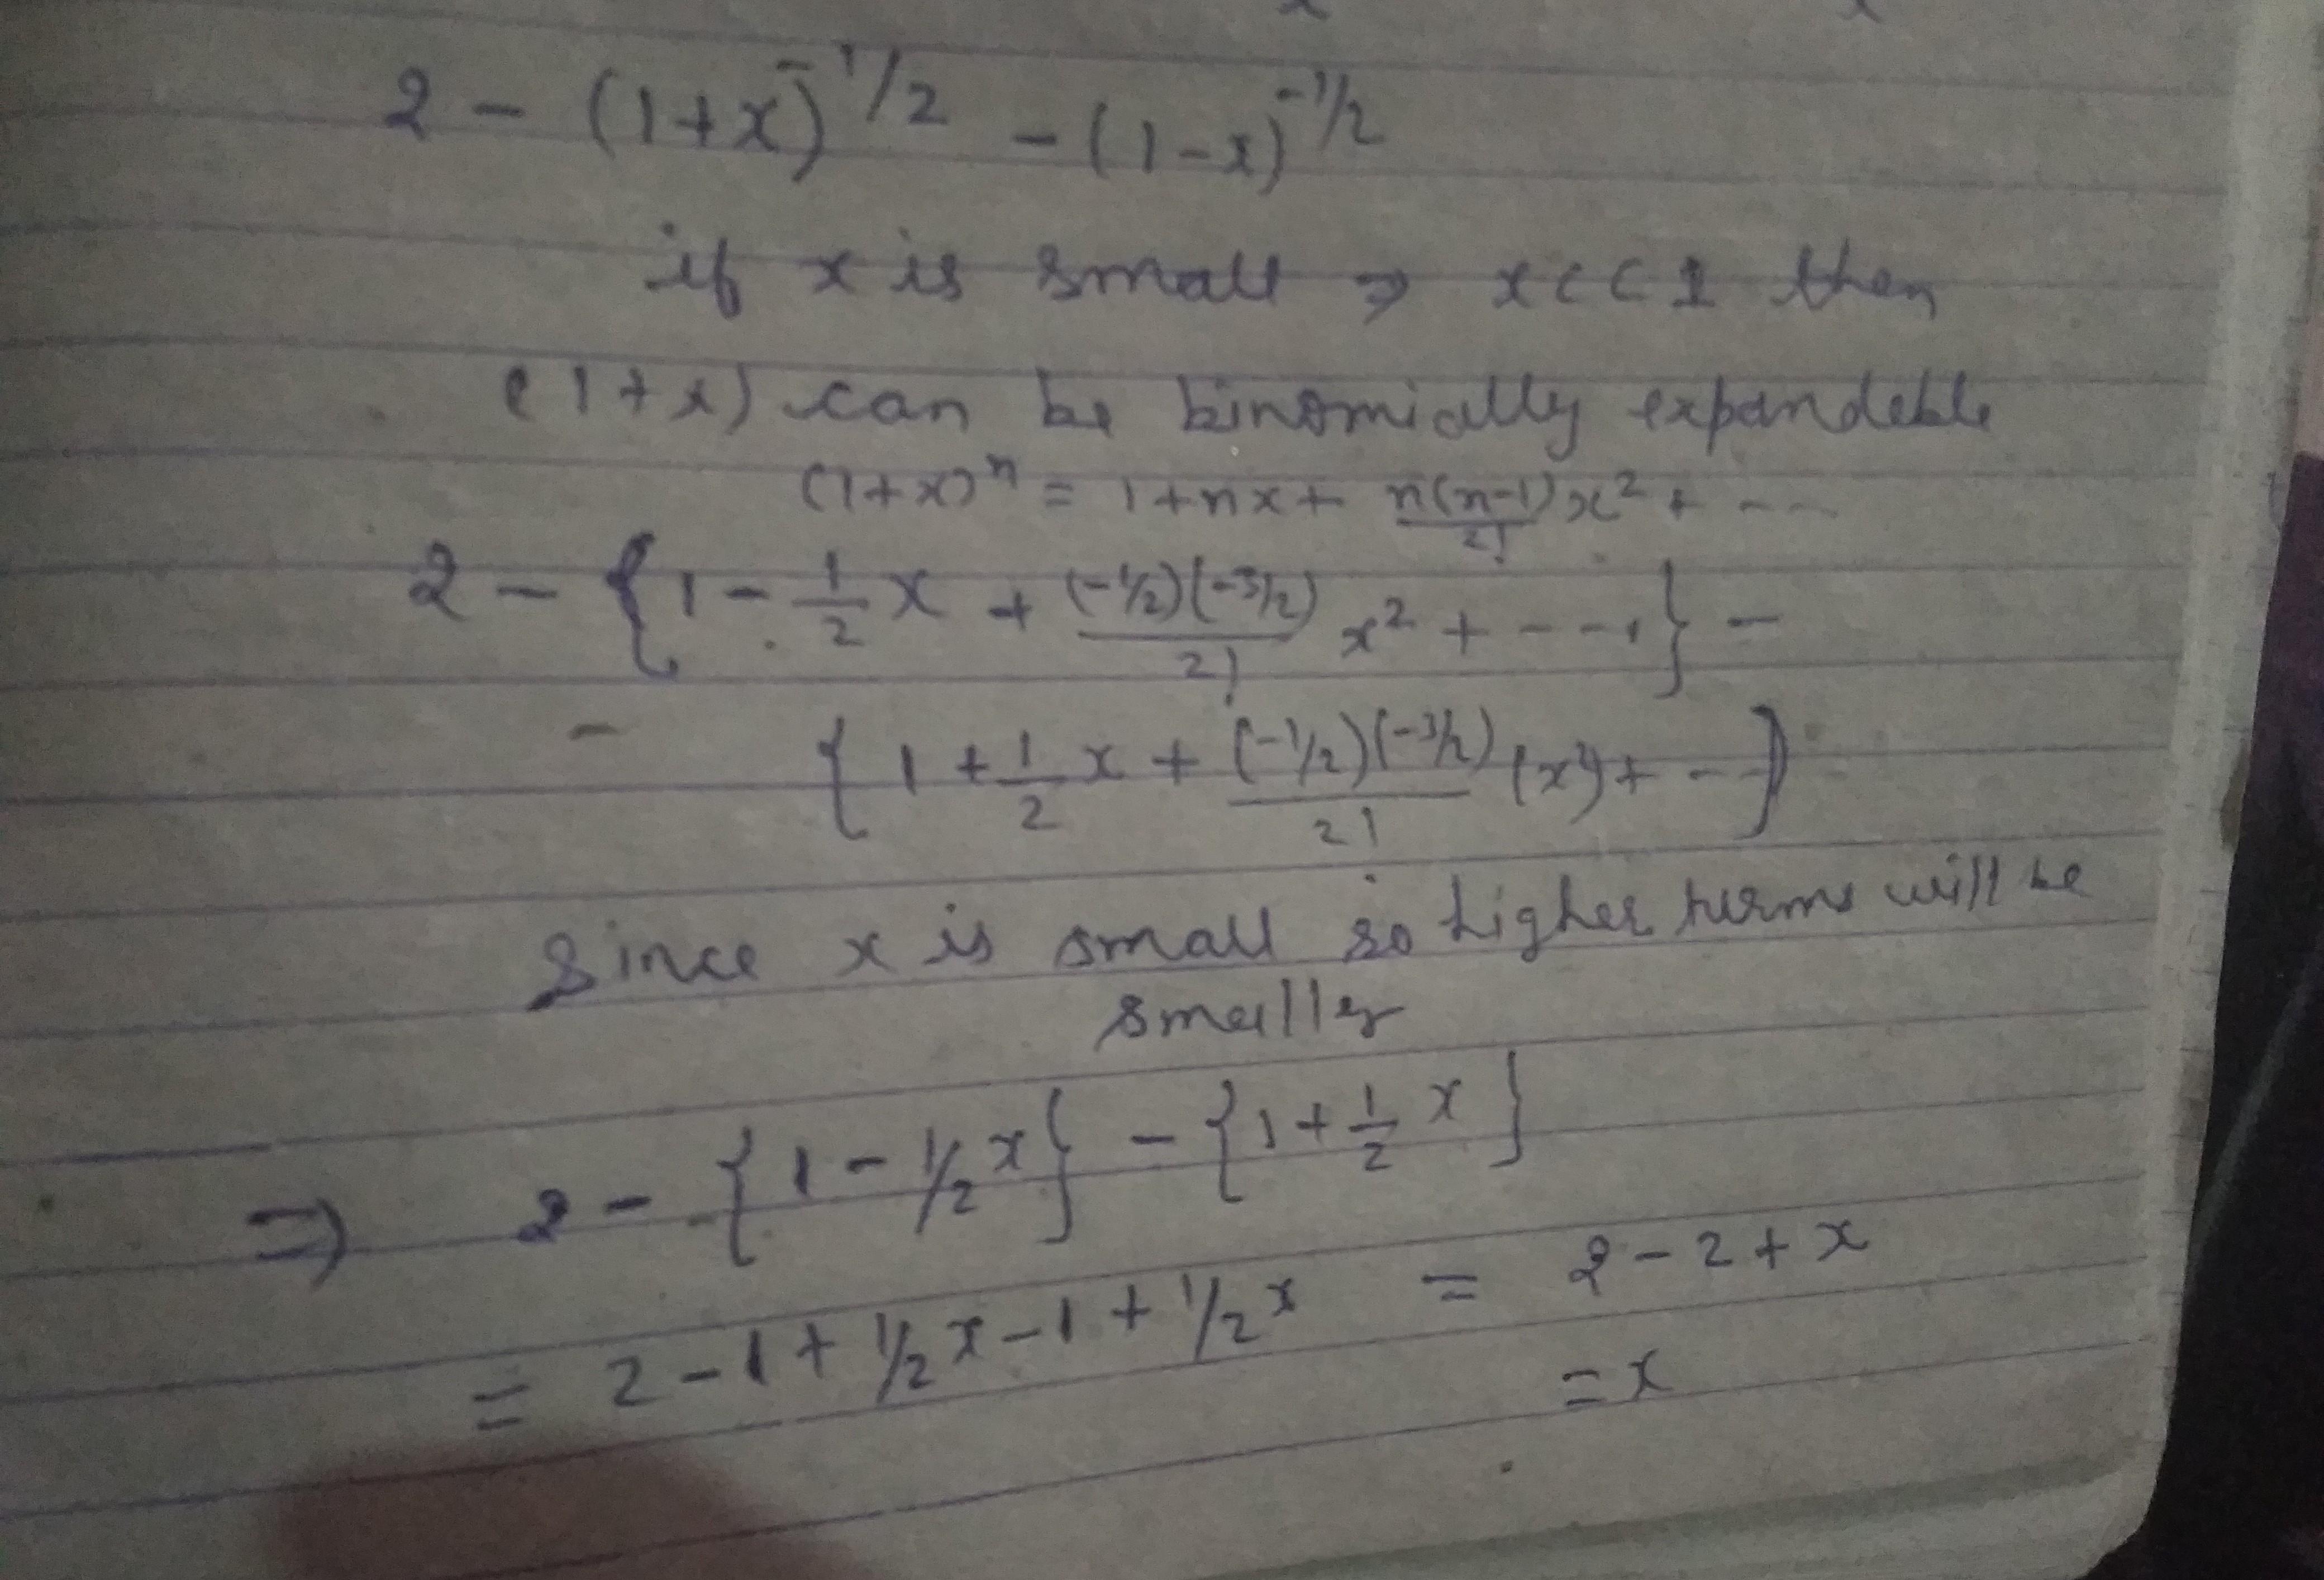 2 - (1+x)^{-1/2} - (1-x)^{-1/2}
if x is small ⇒ x<<1 then
(1+x) can be binomially expandable
(1+x)^n = 1+nx+ \frac{n(n-1)}{2!}x^2 + ---
2 - {1 - \frac{1}{2}x + \frac{(-1/2)(-3/2)}{2!} x^2 + ---} -
- {1 + \frac{1}{2}x + \frac{(-1/2)(-3/2)}{2!} (x^2) + --}
Since x is small so higher terms will be
smaller
⇒ 2 - {1 - 1/2 x} - {1 + \frac{1}{2} x}
= 2 - 1 + 1/2 x - 1 + 1/2 x = 2 - 2 + x
= x